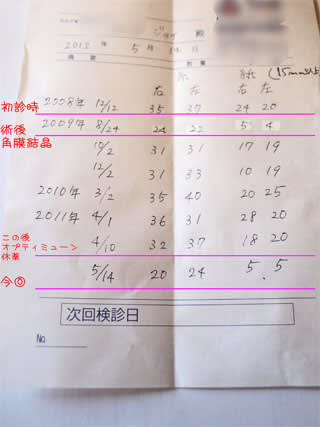 殿
2012 年 5月 14日
右 左 右 左
初診時 2008年 12/12 35 37 24 20
術後 2009年 8/24 24 22 5 4
角膜結晶 10/2 31 31 17 19
12/2 31 33 10 19
2010年 3/2 35 40 20 25
2011年 4/1 36 31 28 20
この後
オプティミューン 4/10 32 37 18 20
休薬
5/14 20 24 5.5
今回
次回検診日
No